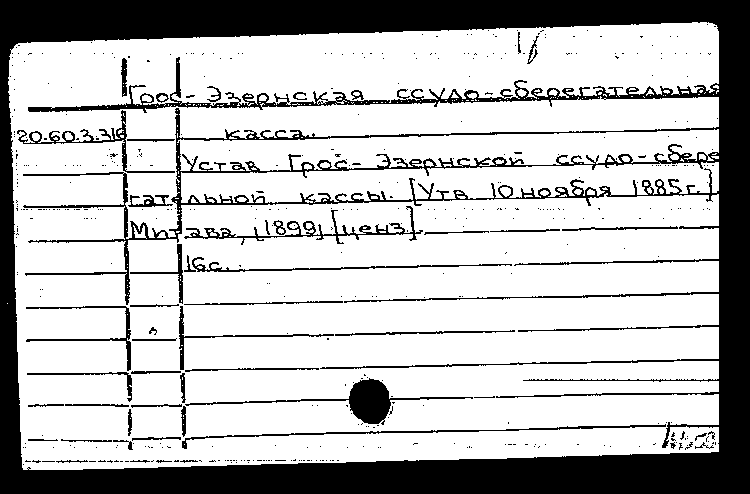 Грос-Эзернская ссудо-сберегательная
20.60.3.316 касса.
Устав Грос-Эзернской ссудо-сбере
гательной кассы. [Утв 10 ноября 1885 г.]
Митава, [1899] [ценз].
16 с.